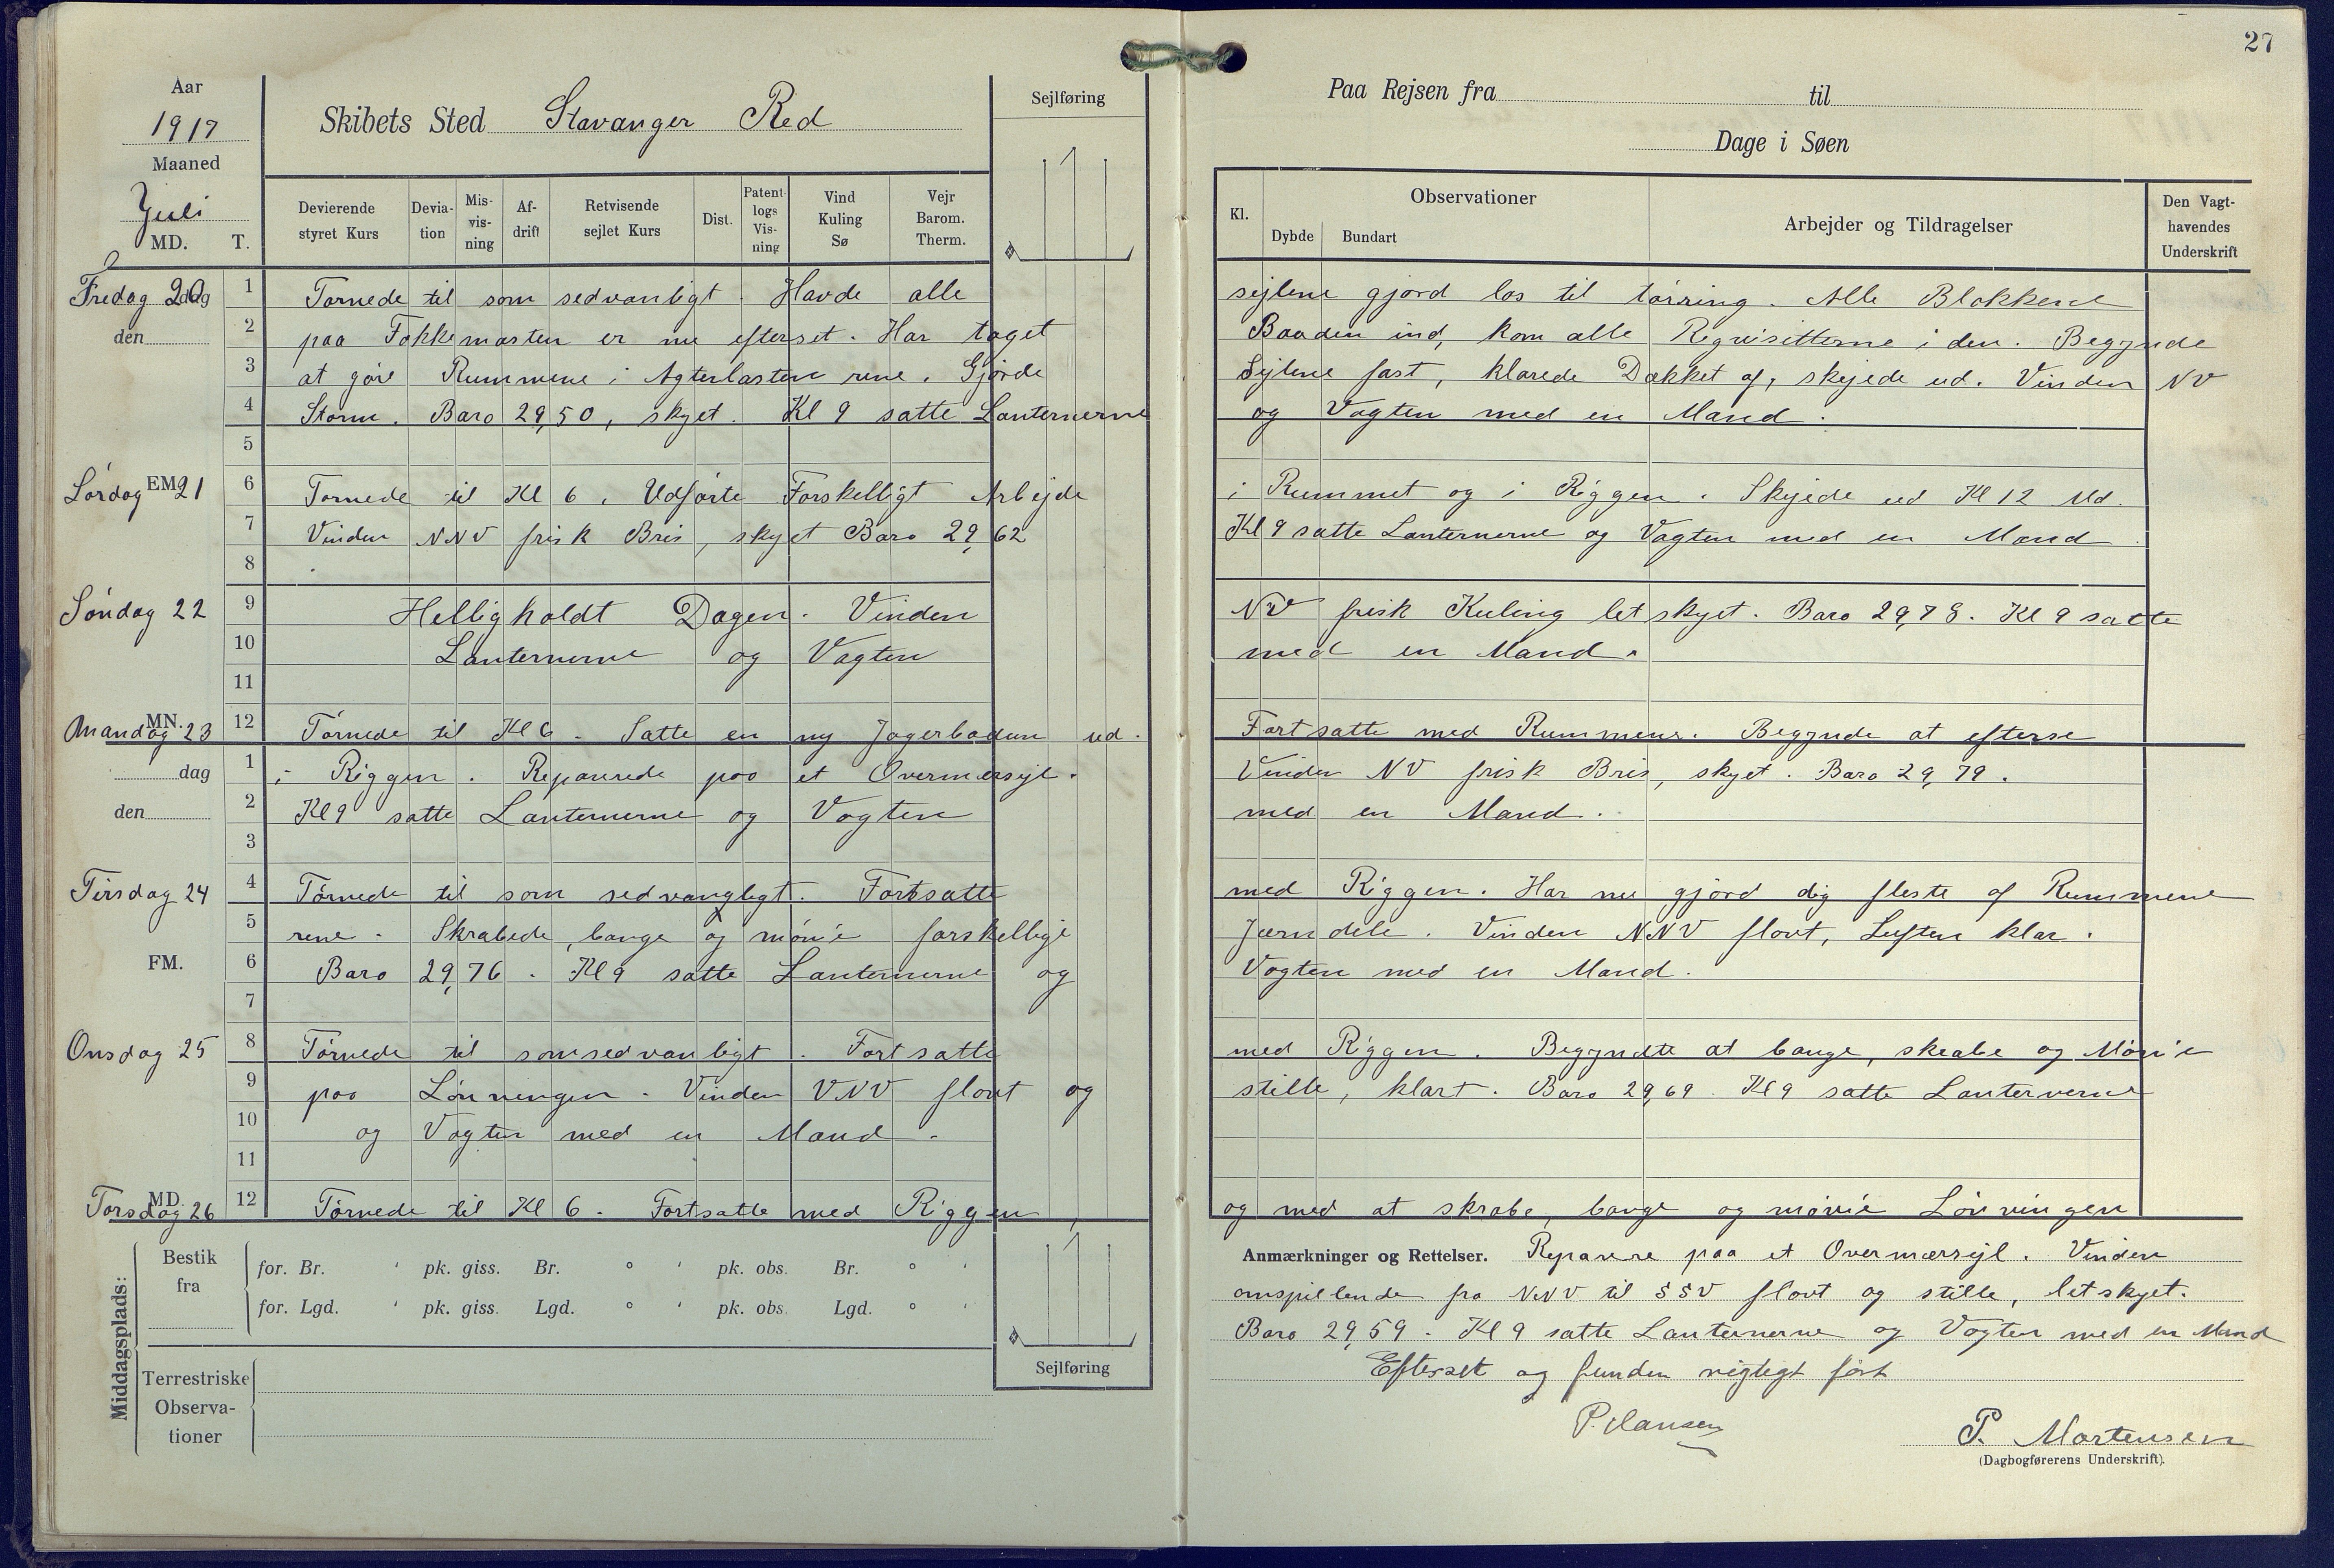 27
Aar
1917
Maaned
Juli
MD. T.
Skibets Sted Stavanger Red
Sejlføring
Devierende styret Kurs
Deviation
Misvisning
Afdrift
Retvisende sejlet Kurs
Dist.
Patentlogs Visning
Vind Kuling Sø
Vejr Barom. Therm.
Paa Rejsen fra til
Dage i Søen
Kl.
Observationer
Dybde Bundart
Arbejder og Tildragelser
Den Vagthavendes Underskrift
Fredag 20 dag
den
1 Tørnede til som sedvanligt. Havde alle sejlene gjord løs til tørring. Alle Blokkene
2 paa Fokkemasten er nu efterset. Har taget Baaden ind, kom alle Reqvisitterne i den. Begynde
3 at göre Rummene i Agterlasten rene. Gjørde Sejlene fast, klarede Dækket af, skejede ud. Vinden NV
4 Storm. Baro 29,50, skyet. Kl 9 satte Lanternerne og Vagten med en Mand.
5
Lørdag EM. 21
6 Tørnede til Kl 6. Udførte Forskelligt Arbejde i Rummet og i Riggen. Skejede ud Kl 12 Md.
7 Vinden NNV frisk Bris, skyet Baro 29,62 Kl 9 satte Lanternerne og Vagten med en Mand.
8
Søndag 22
9 Helligholdt Dagen. Vinden NV frisk Kuling let skyet. Baro 29,78. Kl 9 satte
10 Lanternerne og Vagten med en Mand.
11
Mandag MN. 23
12 Tørnede til Kl 6. Satte en ny Jagerbadun ud. Fortsatte med Rummene. Begynde at efterse
dag
1 i Riggen. Reparerede paa et Overmærssejl. Vinden NV frisk Bris, skyet. Baro 29,79.
den
2 Kl 9 satte Lanternerne og Vagten med en Mand.
3
Tirsdag 24
4 Tørnede til som sedvangligt. Fortsatte med Riggen. Har nu gjörd dig fleste af Rummene
5 rene. Skrabede, bange og møn'e forskellige Jærndele. Vinden NNV flovt, Luften klar.
FM.
6 Baro 29,76. Kl 9 satte Lanternerne og Vagten med en Mand.
7
Onsdag 25
8 Tørnede til som sedvanligt. Fortsatte med Riggen. Begyndte at bange, skrabe og Møn'e
9 paa Lønningen. Vinden VNV flovt og stille, klart. Baro 29,69. Kl 9 satte Lanternerne
10 og Vagten med en Mand.
11
Torsdag MD. 26
12 Tørnede til Kl 6. Fortsatte med Riggen, og med at skrabe, bange og møni'e Lønningen
Middagsplads:
Bestik fra
for. Br. ' pk. giss. Br. ° ' pk. obs. Br. ° '
for. Lgd. ' pk. giss. Lgd. ° ' pk. obs. Lgd. ° '
Terrestriske Observationer
Sejlføring
Anmærkninger og Rettelser. Reparere paa et Overmærssejl. Vinden
omspillende fra NNV til SSV flovt og stille, letskyet.
Baro 29,59. Kl 9 satte Lanternerne og Vagten med en Mand
Efterset og funden rigtigt ført
P. Hansen
P. Mortensen
(Dagbogførerens Underskrift).